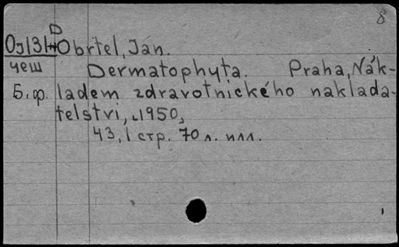 8
D
Oj131н Obrtel, Jan.
чеш Dermatophyta. Praha, Nák-
Б.ф. ladem zdravotnického naklada-
telství, 1950,
43, 1 стр. 70 л. илл.